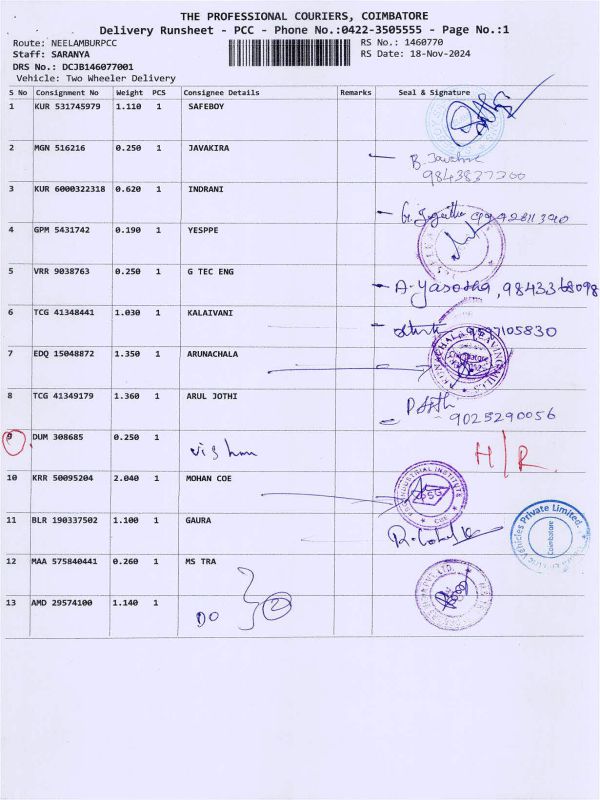 THE PROFESSIONAL COURIERS, COIMBATORE
Delivery Runsheet - PCC - Phone No.:0422-3505555 - Page No.:1
Route: NEELAMBURPCC
RS No.: 1460770
Staff: SARANYA
RS Date: 18-Nov-2024
DRS No.: DCJB146077001
Vehicle: Two Wheeler Delivery
S No Consignment No Weight PCS Consignee Details Remarks Seal & Signature
1 KUR 531745979 1.110 1 SAFEBOY
2 MGN 516216 0.250 1 JAVAKIRA
9843837200
3 KUR 6000322318 0.620 1 INDRANI
4 GPM 5431742 0.190 1 YESPPE
5 VRR 9038763 0.250 1 G TEC ENG
A. Yasodha,
6 TCG 41348441 1.030 1 KALAIVANI
9597105830
7 EDQ 15048872 1.350 1 ARUNACHALA
8 TCG 41349179 1.360 1 ARUL JOTHI
9025290056
9 DUM 308685 0.250 1
H/R
10 KRR 50095204 2.040 1 MOHAN COE
INDUSTRIAL INSTITUTE
PSG
11 BLR 190337502 1.100 1 GAURA
Vehicles Private Limited.
Coimbatore
12 MAA 575840441 0.260 1 MS TRA
13 AMD 29574100 1.140 1
DO 2